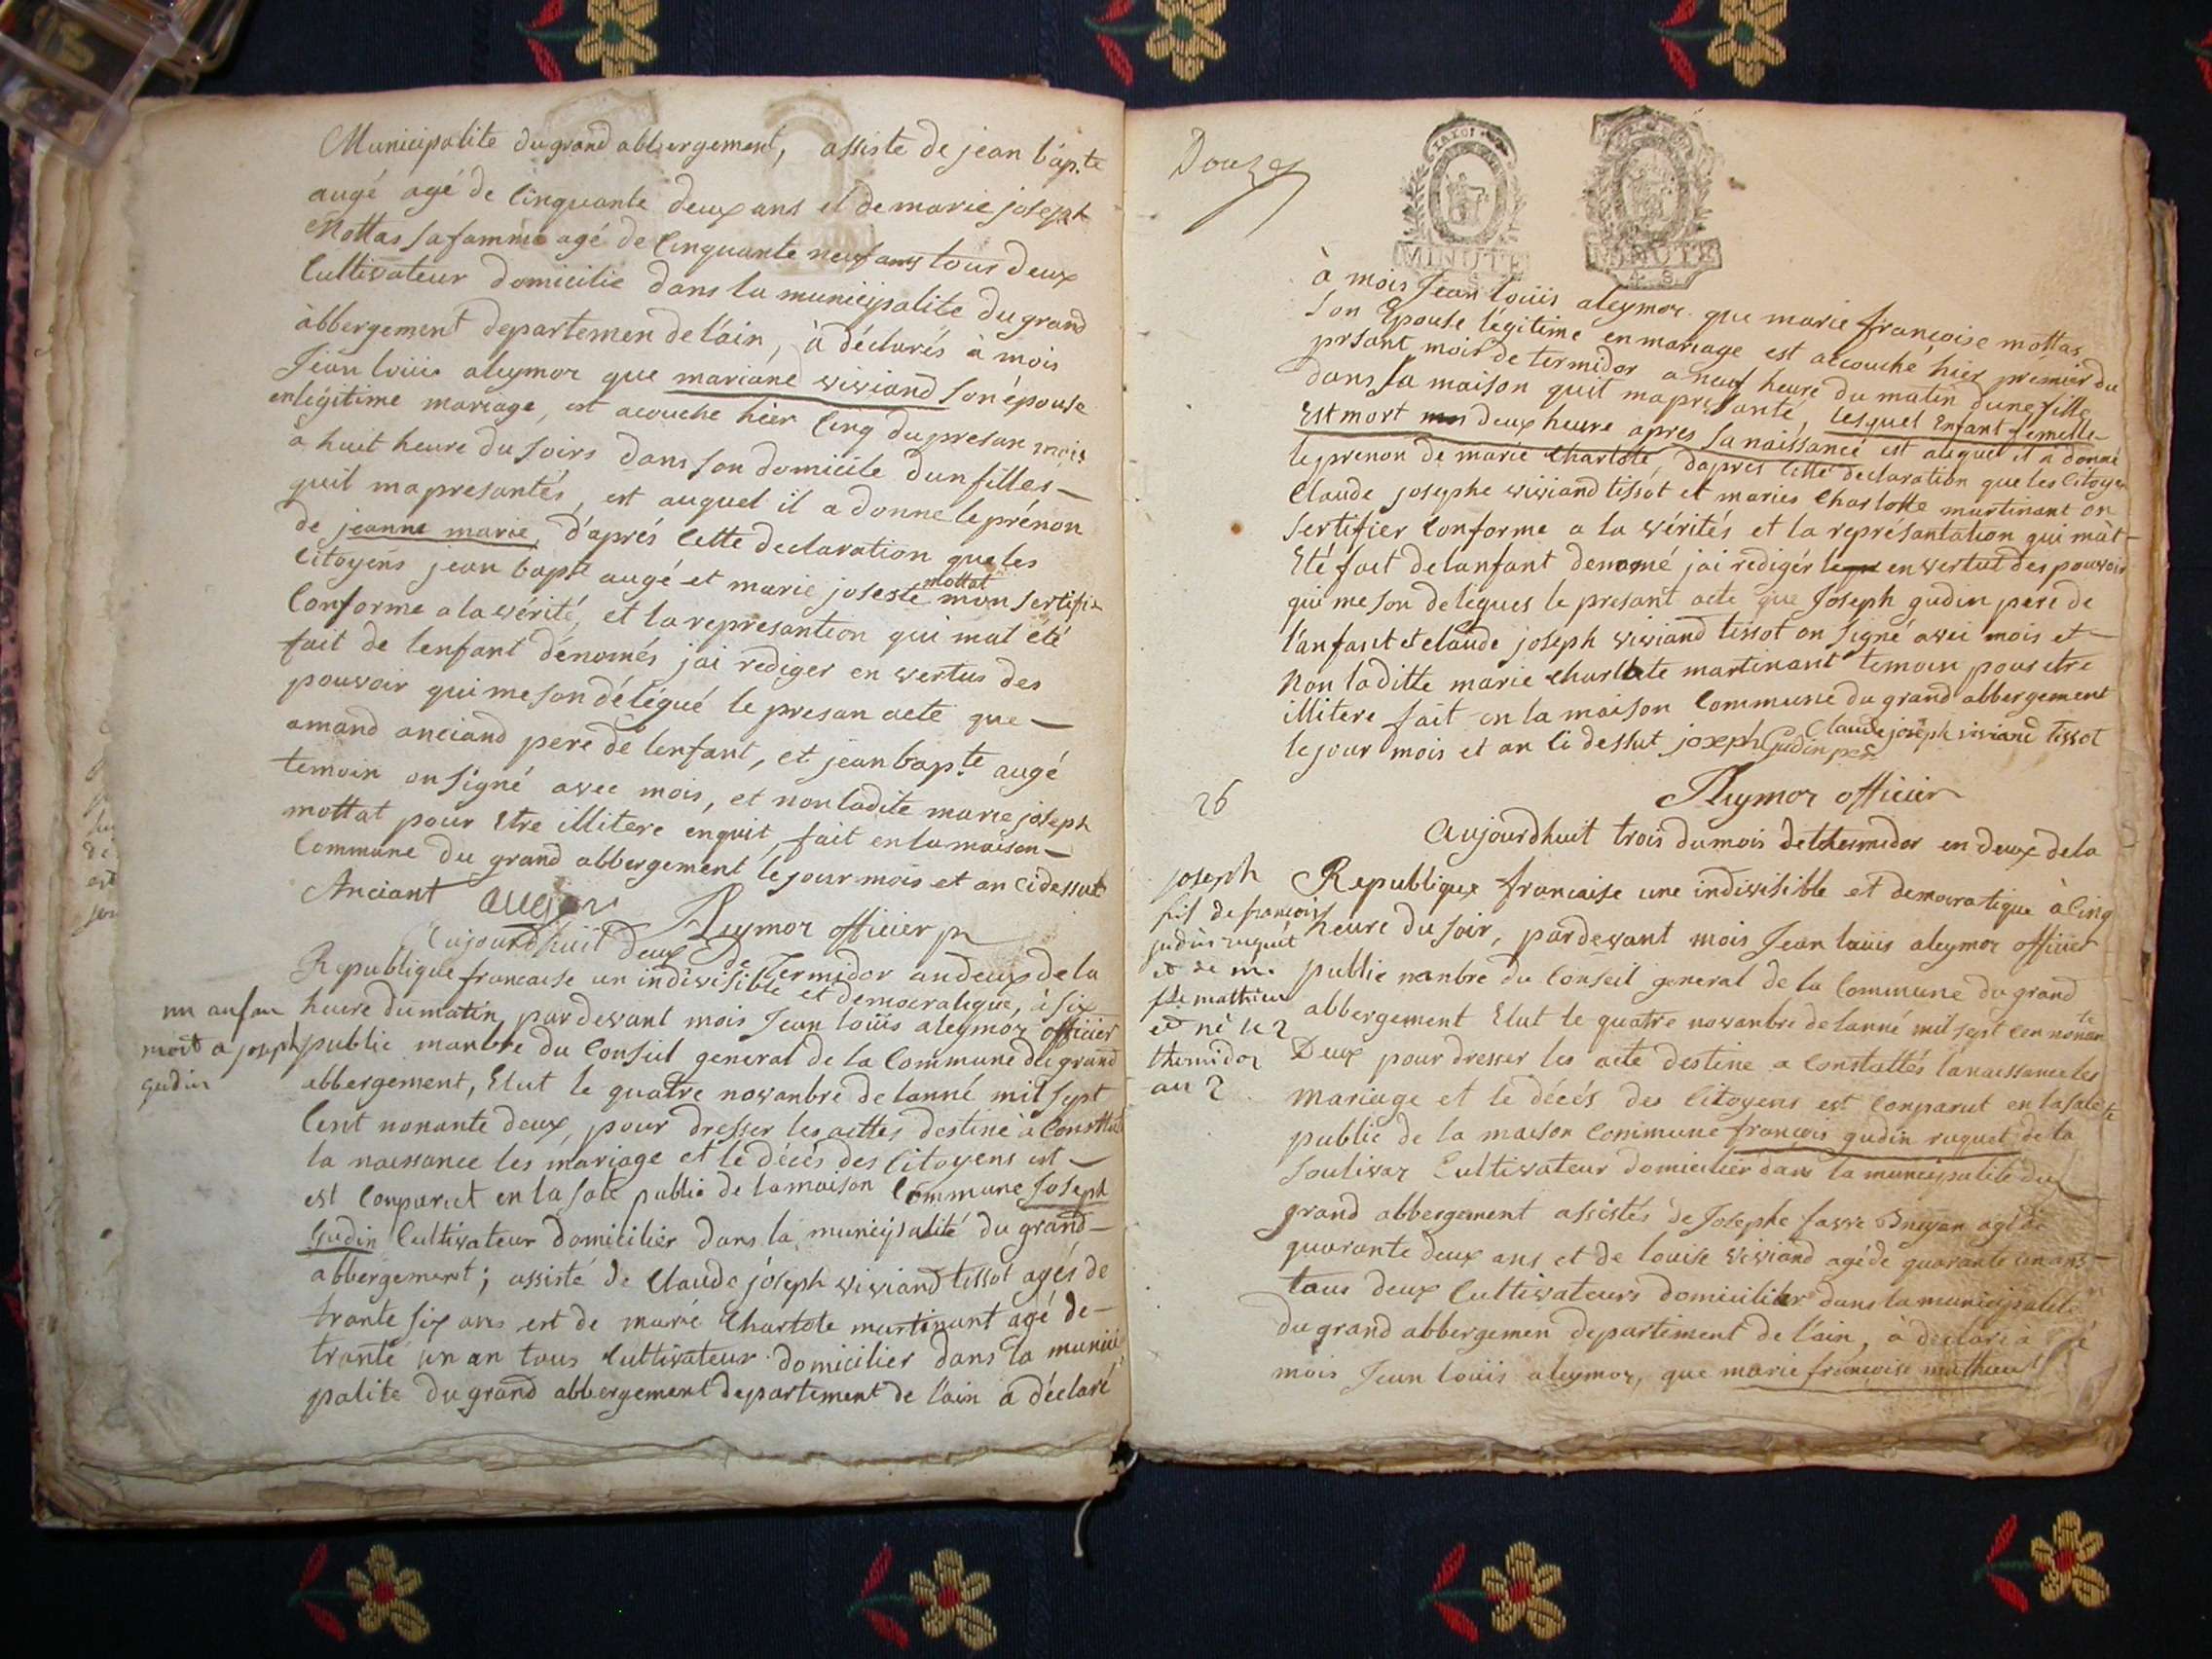 Municipalite du grand abbergement, assiste de jean bap.te
augé agé de cinquante deux ans et de marie joseph
Mottas sa famme agé de cinquante neuf ans tous deux
Cultivateur domicilie dans la municipalite du grand
àbbergement departemen de l'ain, à déclarés à mois
Jean louiis aleymor que mariane viviand son épouse
en légitime mariage, est acouche hier cinq du presan mois
à huit heure du soirs dans son domicile dun filles
quil ma presantés, est auquel il a donne le prénon
de jeanne marie, d'aprés cette declaration que les
citoyens jean bap.te augé et marie joseste mottat mon sertifi
Conforme a la vérité, et la represantion qui mat été
fait de lenfant dénomés jai rediger en vertus des
pouvoir qui me son délégué le presan acte que
amand anciand pere de lenfant, et jean bap.te augé
temoin on signé avec mois, et non ladite marie joseph
mottat pour Etre illitere enquit, fait en la maison
Commune du grand abbergement le jour mois et an ci dessut
Anciant auger
Aleymor officier
Aujourdhuit deux de Termidor an deux de la
Republique francaise un indivisible et democratique, à six
heure du matin, pardevant mois Jean louiis aleymor officier
public manbre du Conseil general de la Commune du grand
abbergement, Elut le quatre novanbre de lanné mil sept
Cent nonante deux, pour dresser les acttes destiné à Consttat
la naissance les mariage et le décés des Citoyens est
est Conparut en la sale public de la maison Commune Joseph
Gudin Cultivateur domicilier dans la municipalité du grand
abbergement; assisté de Claude joseph viviand tissot agés de
trante six ans est de marie Charlote martinant agé de
trante un an tous Cultivateur domicilier dans la munici
palite du grand abbergement departement de l'ain a déclaré
un anfan
mort a joseph
gudin
Douze
MINUTE
MINUTE
à mois Jean louiis aleymor que marie françoise mottas
son Epouse légitime en mariage est accouché hier premier du
prsant mois de termidor a neuf heure du matin dune fille
dans sa maison quil ma presanté, lesquel Enfant femelle
Est mort deux heure apres sa naissance est auquel il a donné
le prenon de marie Charlote, dapres cette declaration que les Citoyen
Claude josephe viviand tissot et maries Charlotte martinant on
sertifier Conforme a la vérités et la représantation qui màt
Eté fait de lanfant denomé jai redigér en vertut des pouvoir
qui me son delegues le presant acte que Joseph gudin pere de
l'anfant et claude joseph viviand tissot on signé avec mois et
non laditte marie charllote martinant temoin pour etre
illitere fait en la maison Commune du grand abbergement
le jour mois et an ci dessut joseph Gudin pere Claude joseph viviand tissot
Aleymor officier
26
Aujourdhuit trois du mois de thermidor en deux de la
Republique francaise une indivisible et democratique à cinq
heure du soir, pardevant mois Jean louiis aleymor officier
public manbre du Conseil general de la Commune du grand
abbergement Elut le quatre novanbre de lanné mil sept cen nonante
Deux pour dresser les acte destine a Constattés la naissance les
mariage et le décés des Citoyens est Conparut en la sale
public de la maison Commune francois gudin ruquet de la
Soulivar Cultivateur domicilier dans la municipalité du
grand abbergement assistés de Josephe favre agé de
quarante deux ans et de louise viviand agé de quarante un ans
tous deux Cultivateurs domicilier dans la municipalite
du grand abbergemen departement de l'ain, à declaré à
mois Jean louiis aleymor, que marie françoise mathieut
joseph
fils de francois
gudin ruquet
et de m.
f.se mathieu
est né le 2
thermidor
an 2